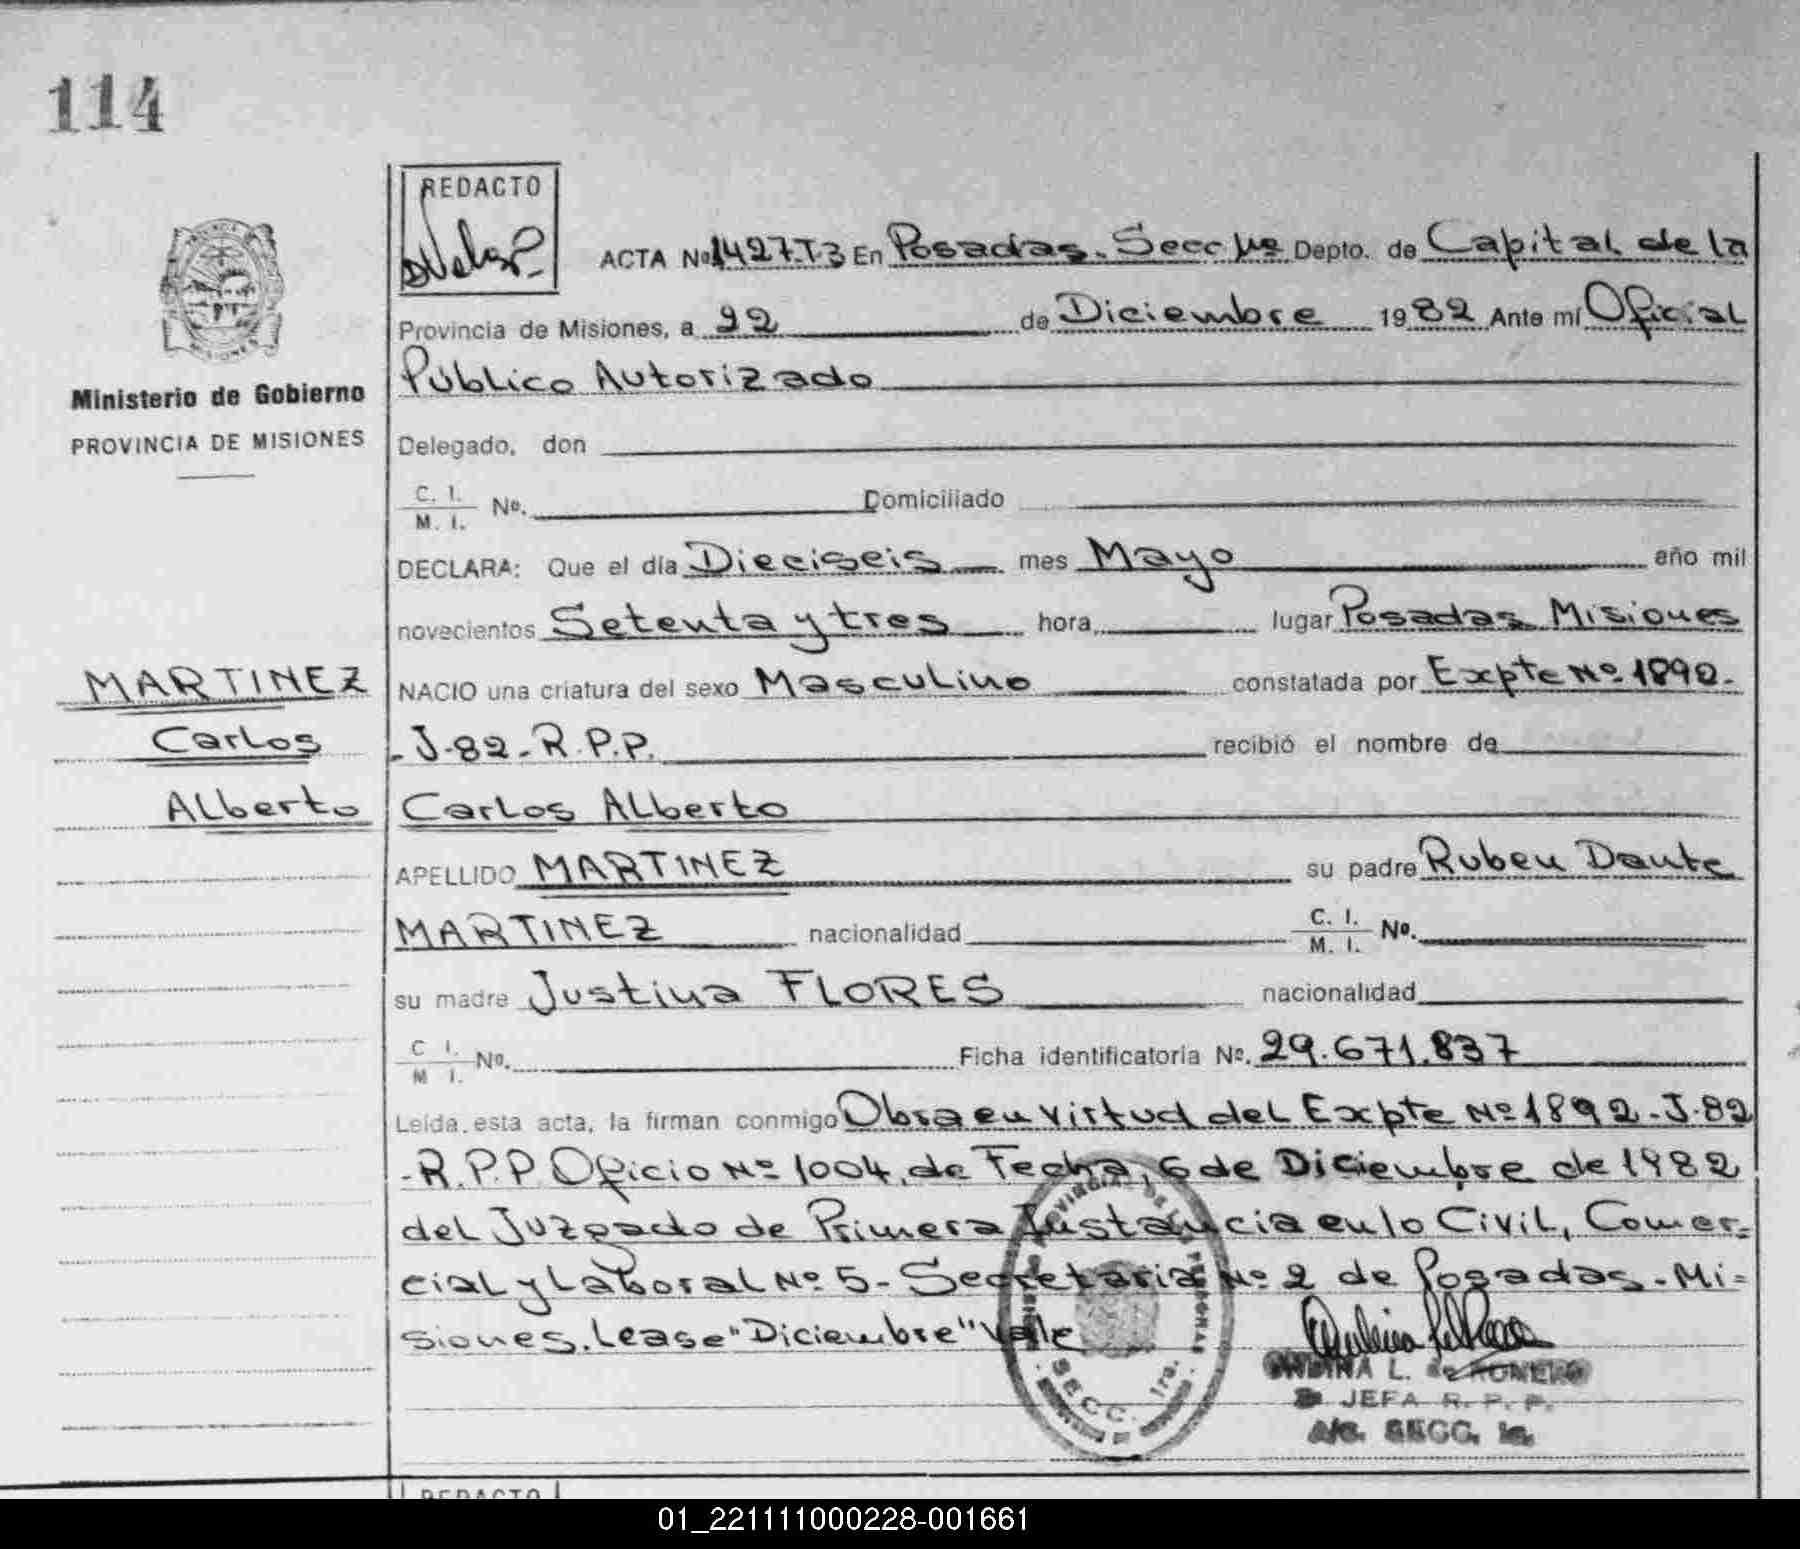 114
REDACTO
ACTA Nº 1427.T.3 En Posadas. Secc 1ra Depto. de Capital de la
Provincia de Misiones, a 22 de Diciembre 1982 Ante mí Oficial
Público Autorizado
Ministerio de Gobierno
PROVINCIA DE MISIONES
Delegado, don
C. I. / M. I. Nº. Domiciliado
DECLARA: Que el día Dieciseis mes Mayo año mil
novecientos Setenta y tres hora lugar Posadas Misiones
MARTINEZ
NACIO una criatura del sexo Masculino constatada por Expte Nº 1892-
Carlos
-J-82-R.P.P. recibió el nombre de
Alberto
Carlos Alberto
APELLIDO MARTINEZ su padre Ruben Dante
MARTINEZ nacionalidad C. I. / M. I. Nº.
su madre Justina FLORES nacionalidad
C. I. / M. I. Nº. Ficha identificatoria Nº. 29.671.837
Leída esta acta, la firman conmigo Obra en virtud del Expte Nº 1892-J-82
-R.P.P. Oficio Nº 1004, de Fecha, 6 de Diciembre de 1982
del Juzgado de Primera Instancia en lo Civil, Comer-
cial y Laboral Nº 5- Secretaria Nº 2 de Posadas.- Mi=
siones. Lease "Diciembre" Vale
PROVINCIAL DE LAS PERSONAS
SECC. 1ra.
ONDINA L. de ROMERO
JEFA R. P. P.
A/C. SECC. 1a.
REDACTO
01_221111000228-001661